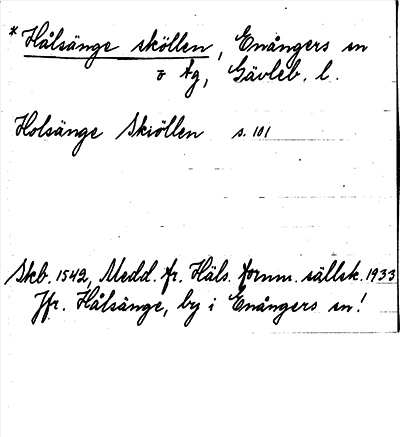 * Hålsänge sköllen, Enångers sn
o tg, Gävleb. l.
Holsänge Skiöllen s. 101
Skb. 1542, Medd. fr. Häls. fornm. sällsk. 1933
Jfr. Hålsänge, by i Enångers sn!